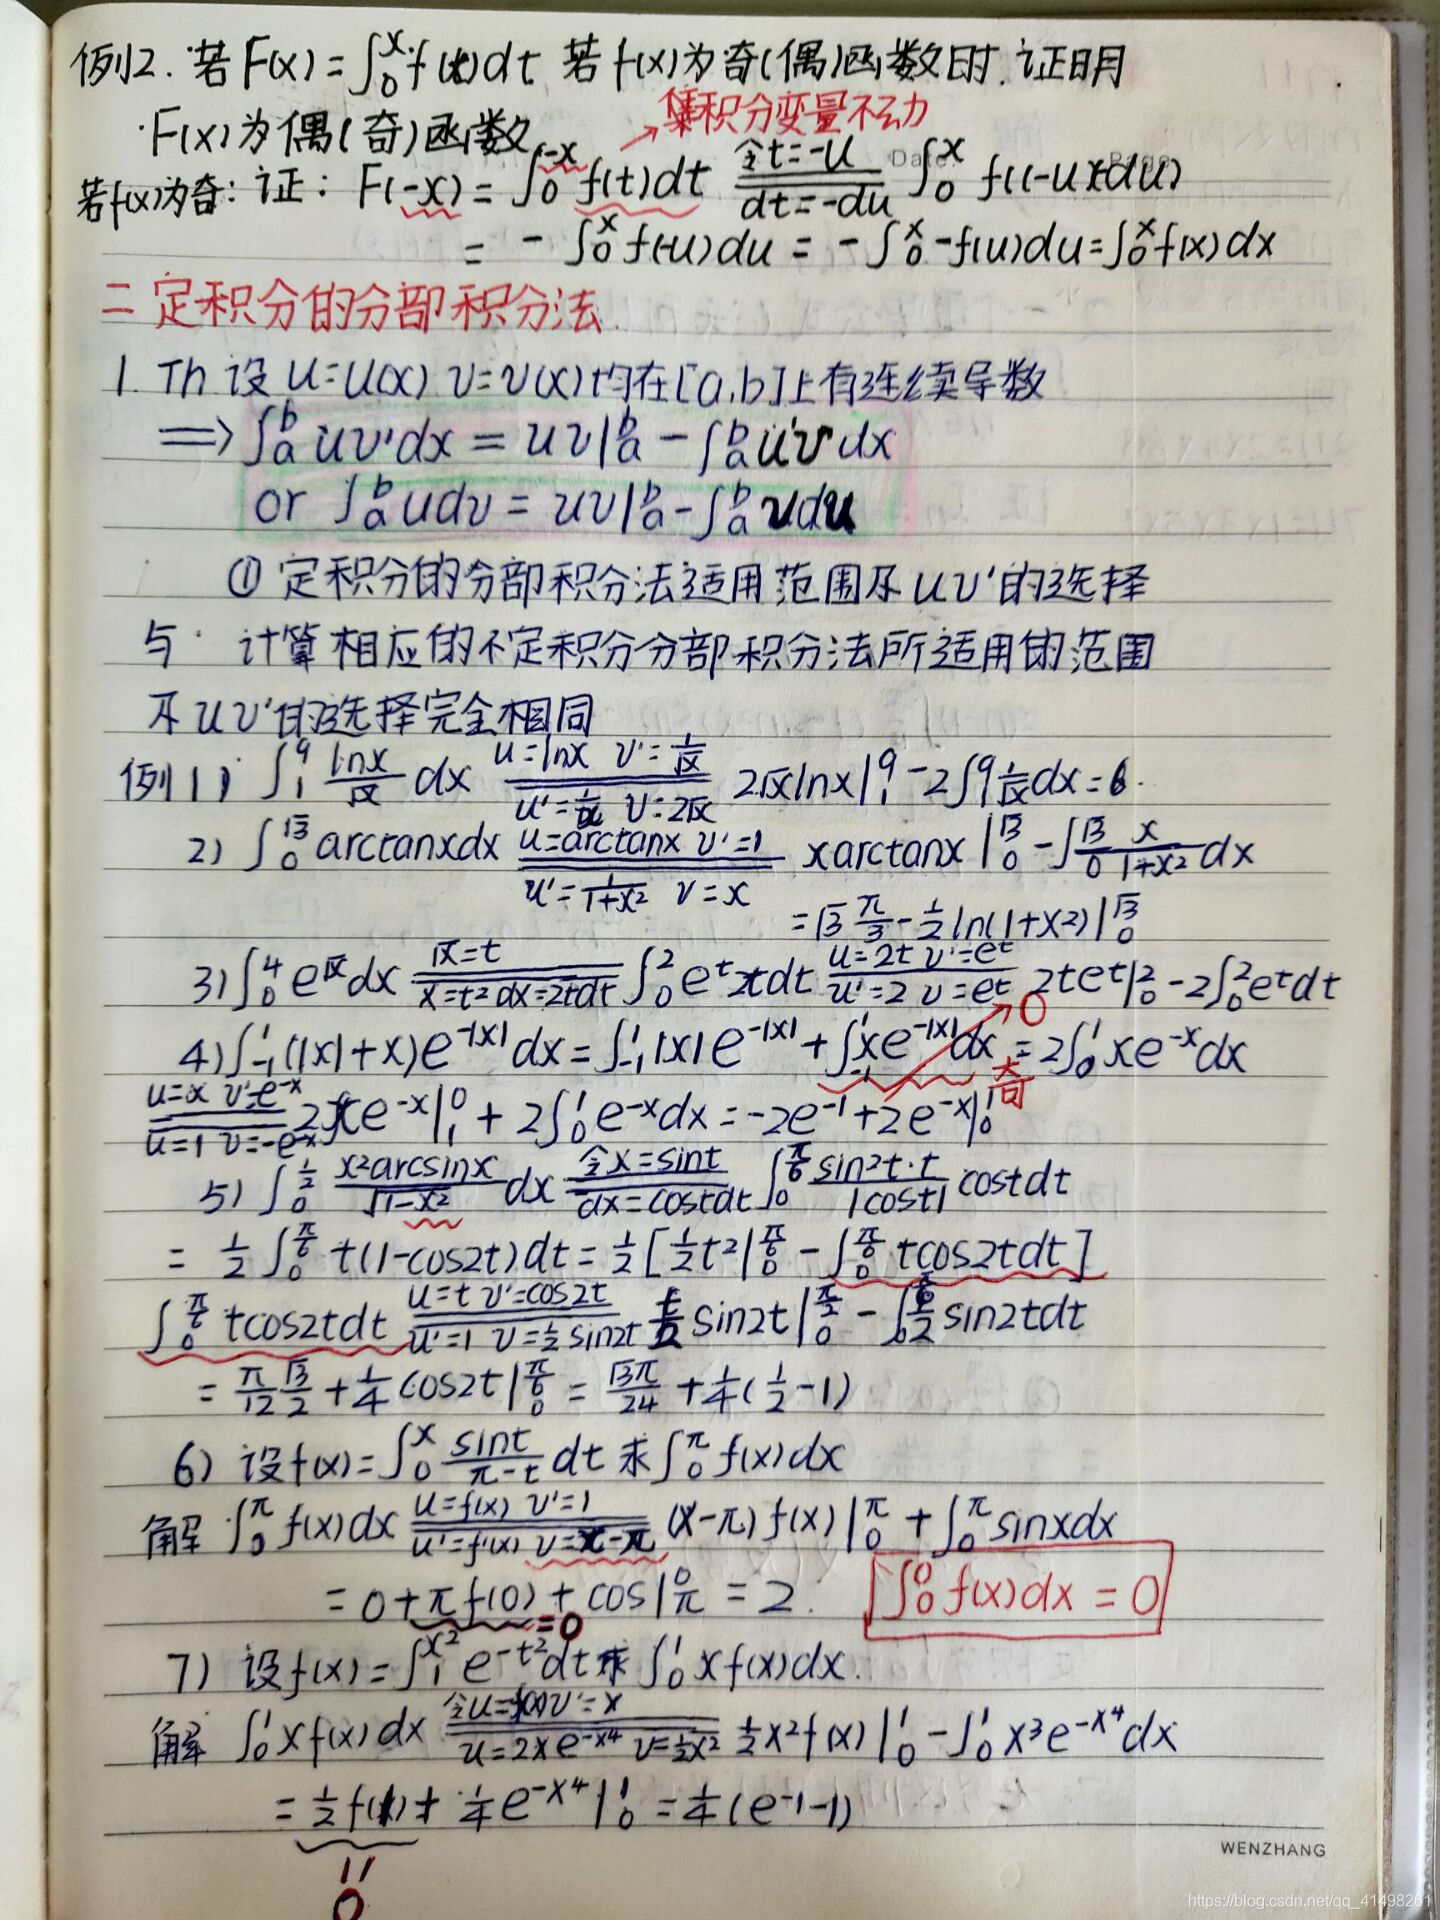 例2. 若 F(x) = ∫₀ˣ f(t)dt 若 f(x)为奇(偶)函数时. 证明
F(x)为偶(奇)函数
积分变量不动
若f(x)为奇: 证: F(-x) = ∫₀^{-x} f(t)dt 令t=-u dt=-du ∫₀ˣ f(-u)(-du)
= - ∫₀ˣ f(-u)du = -∫₀ˣ -f(u)du = ∫₀ˣ f(x)dx
二 定积分的分部积分法
1. Th 设 u=u(x) v=v(x)均在[a,b]上有连续导数
⟹ ∫ₐᵇ uv'dx = uv|ₐᵇ - ∫ₐᵇ u'v dx
or ∫ₐᵇ udv = uv|ₐᵇ - ∫ₐᵇ vdu
① 定积分的分部积分法适用范围及 uv'的选择
与 计算相应的不定积分分部积分法所适用的范围
及 uv'的选择完全相同
例1 1) ∫₁⁹ lnx/√x dx u=lnx v'=1/√x u'=1/x v=2√x 2√x lnx|₁⁹ - 2∫₁⁹ 1/√x dx = 6.
2) ∫₀^{√3} arctanxdx u=arctanx v'=1 u'=1/(1+x²) v=x xarctanx|₀^{√3} - ∫₀^{√3} x/(1+x²) dx
= √3 π/3 - 1/2 ln(1+x²)|₀^{√3}
3) ∫₀⁴ e^{√x} dx √x=t x=t² dx=2tdt ∫₀² eᵗ 2tdt u=2t v'=eᵗ u'=2 v=eᵗ 2teᵗ|₀² - 2∫₀² eᵗdt
4) ∫₋₁¹ (|x|+x)e^{-|x|} dx = ∫₋₁¹ |x|e^{-|x|} + ∫₋₁¹ xe^{-|x|} dx = 2∫₀¹ xe^{-x}dx
0
奇
u=x v'=e^{-x} u=1 v=-e^{-x} 2xe^{-x}|₁⁰ + 2∫₀¹ e^{-x}dx = -2e^{-1} + 2e^{-x}|₀¹
5) ∫₀^{1/2} x²arcsinx/√(1-x²) dx 令x=sint dx=costdt ∫₀^{π/6} sin²t·t/|cost| costdt
= 1/2 ∫₀^{π/6} t(1-cos2t)dt = 1/2 [1/2 t²|₀^{π/6} - ∫₀^{π/6} tcos2tdt]
∫₀^{π/6} tcos2tdt u=t v'=cos2t u'=1 v=1/2 sin2t t/2 sin2t|₀^{π/2} - ∫₀^{π/6} 1/2 sin2tdt
= π/12 √3/2 + 1/4 cos2t|₀^{π/6} = √3π/24 + 1/4(1/2 - 1)
6) 设f(x)=∫₀ˣ sint/(π-t) dt 求∫₀^π f(x)dx
解 ∫₀^π f(x)dx u=f(x) v'=1 u'=f'(x) v=x-π (x-π)f(x)|₀^π + ∫₀^π sinxdx
= 0 + πf(0) + cos|_π⁰ = 2.
=0
∫₀⁰ f(x)dx = 0
7) 设f(x)=∫₁^{x²} e^{-t²}dt 求 ∫₀¹ xf(x)dx.
解 ∫₀¹ xf(x)dx 令u=f(x) v'=x u=2xe^{-x⁴} v=1/2x² 1/2x²f(x)|₀¹ - ∫₀¹ x³e^{-x⁴}dx
= 1/2 f(1) + 1/4 e^{-x⁴}|₀¹ = 1/4(e^{-1}-1)
=
0
WENZHANG
https://blog.csdn.net/qq_41498261